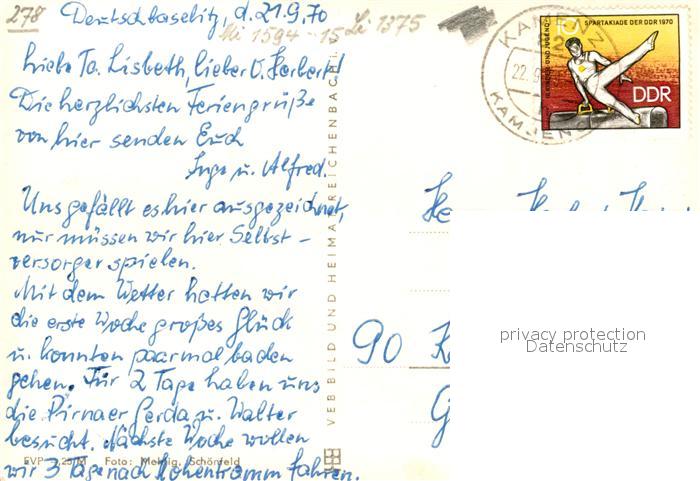 278
Deutschbaselitz, d. 21.9.70
Mi 1594 - 15 Li 1375
liebe Ta. Lisbeth, lieber O. Herbert!
Die herzlichsten Feriengrüße
von hier senden Euch
Inge u. Alfred.
Uns gefällt es hier ausgezeichnet,
nur müssen wir hier Selbst-
versorger spielen.
Mit dem Wetter hatten wir
die erste Woche großes Glück
u. konnten paarmal baden
gehen. Für 2 Tage haben uns
die Pirnaer Gerda u. Walter
besucht. Nächste Woche wollen
wir 3 Tage nach Hohentramm fahren.
EVP 0,25 M Foto: Schönfeld
VEB BILD UND HEIMAT REICHENBACH
KAMENZ
22.9
KAMJENC
KINDER- UND JUGEND-
SPARTAKIADE DER DDR 1970
10
DDR
90 K
privacy protection
Datenschutz